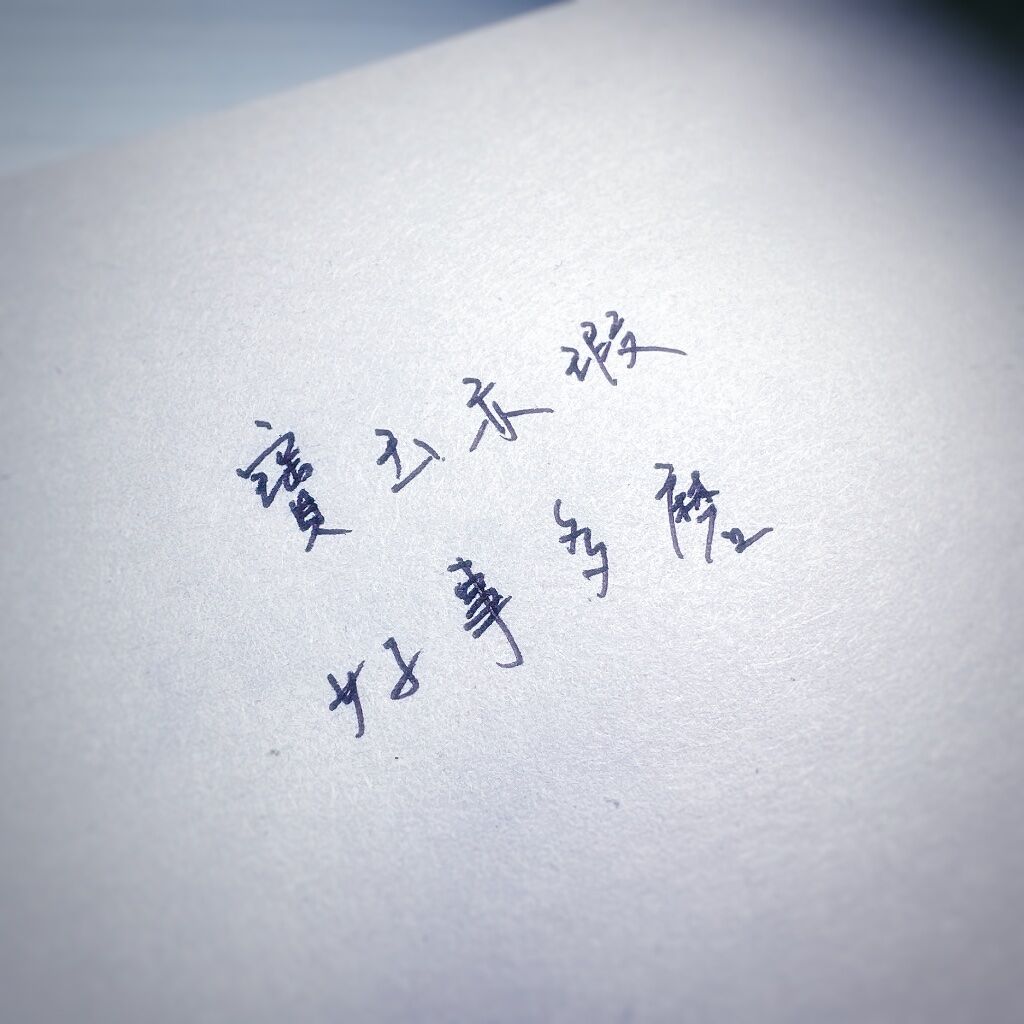 寶玉亦瑕
好事多磨